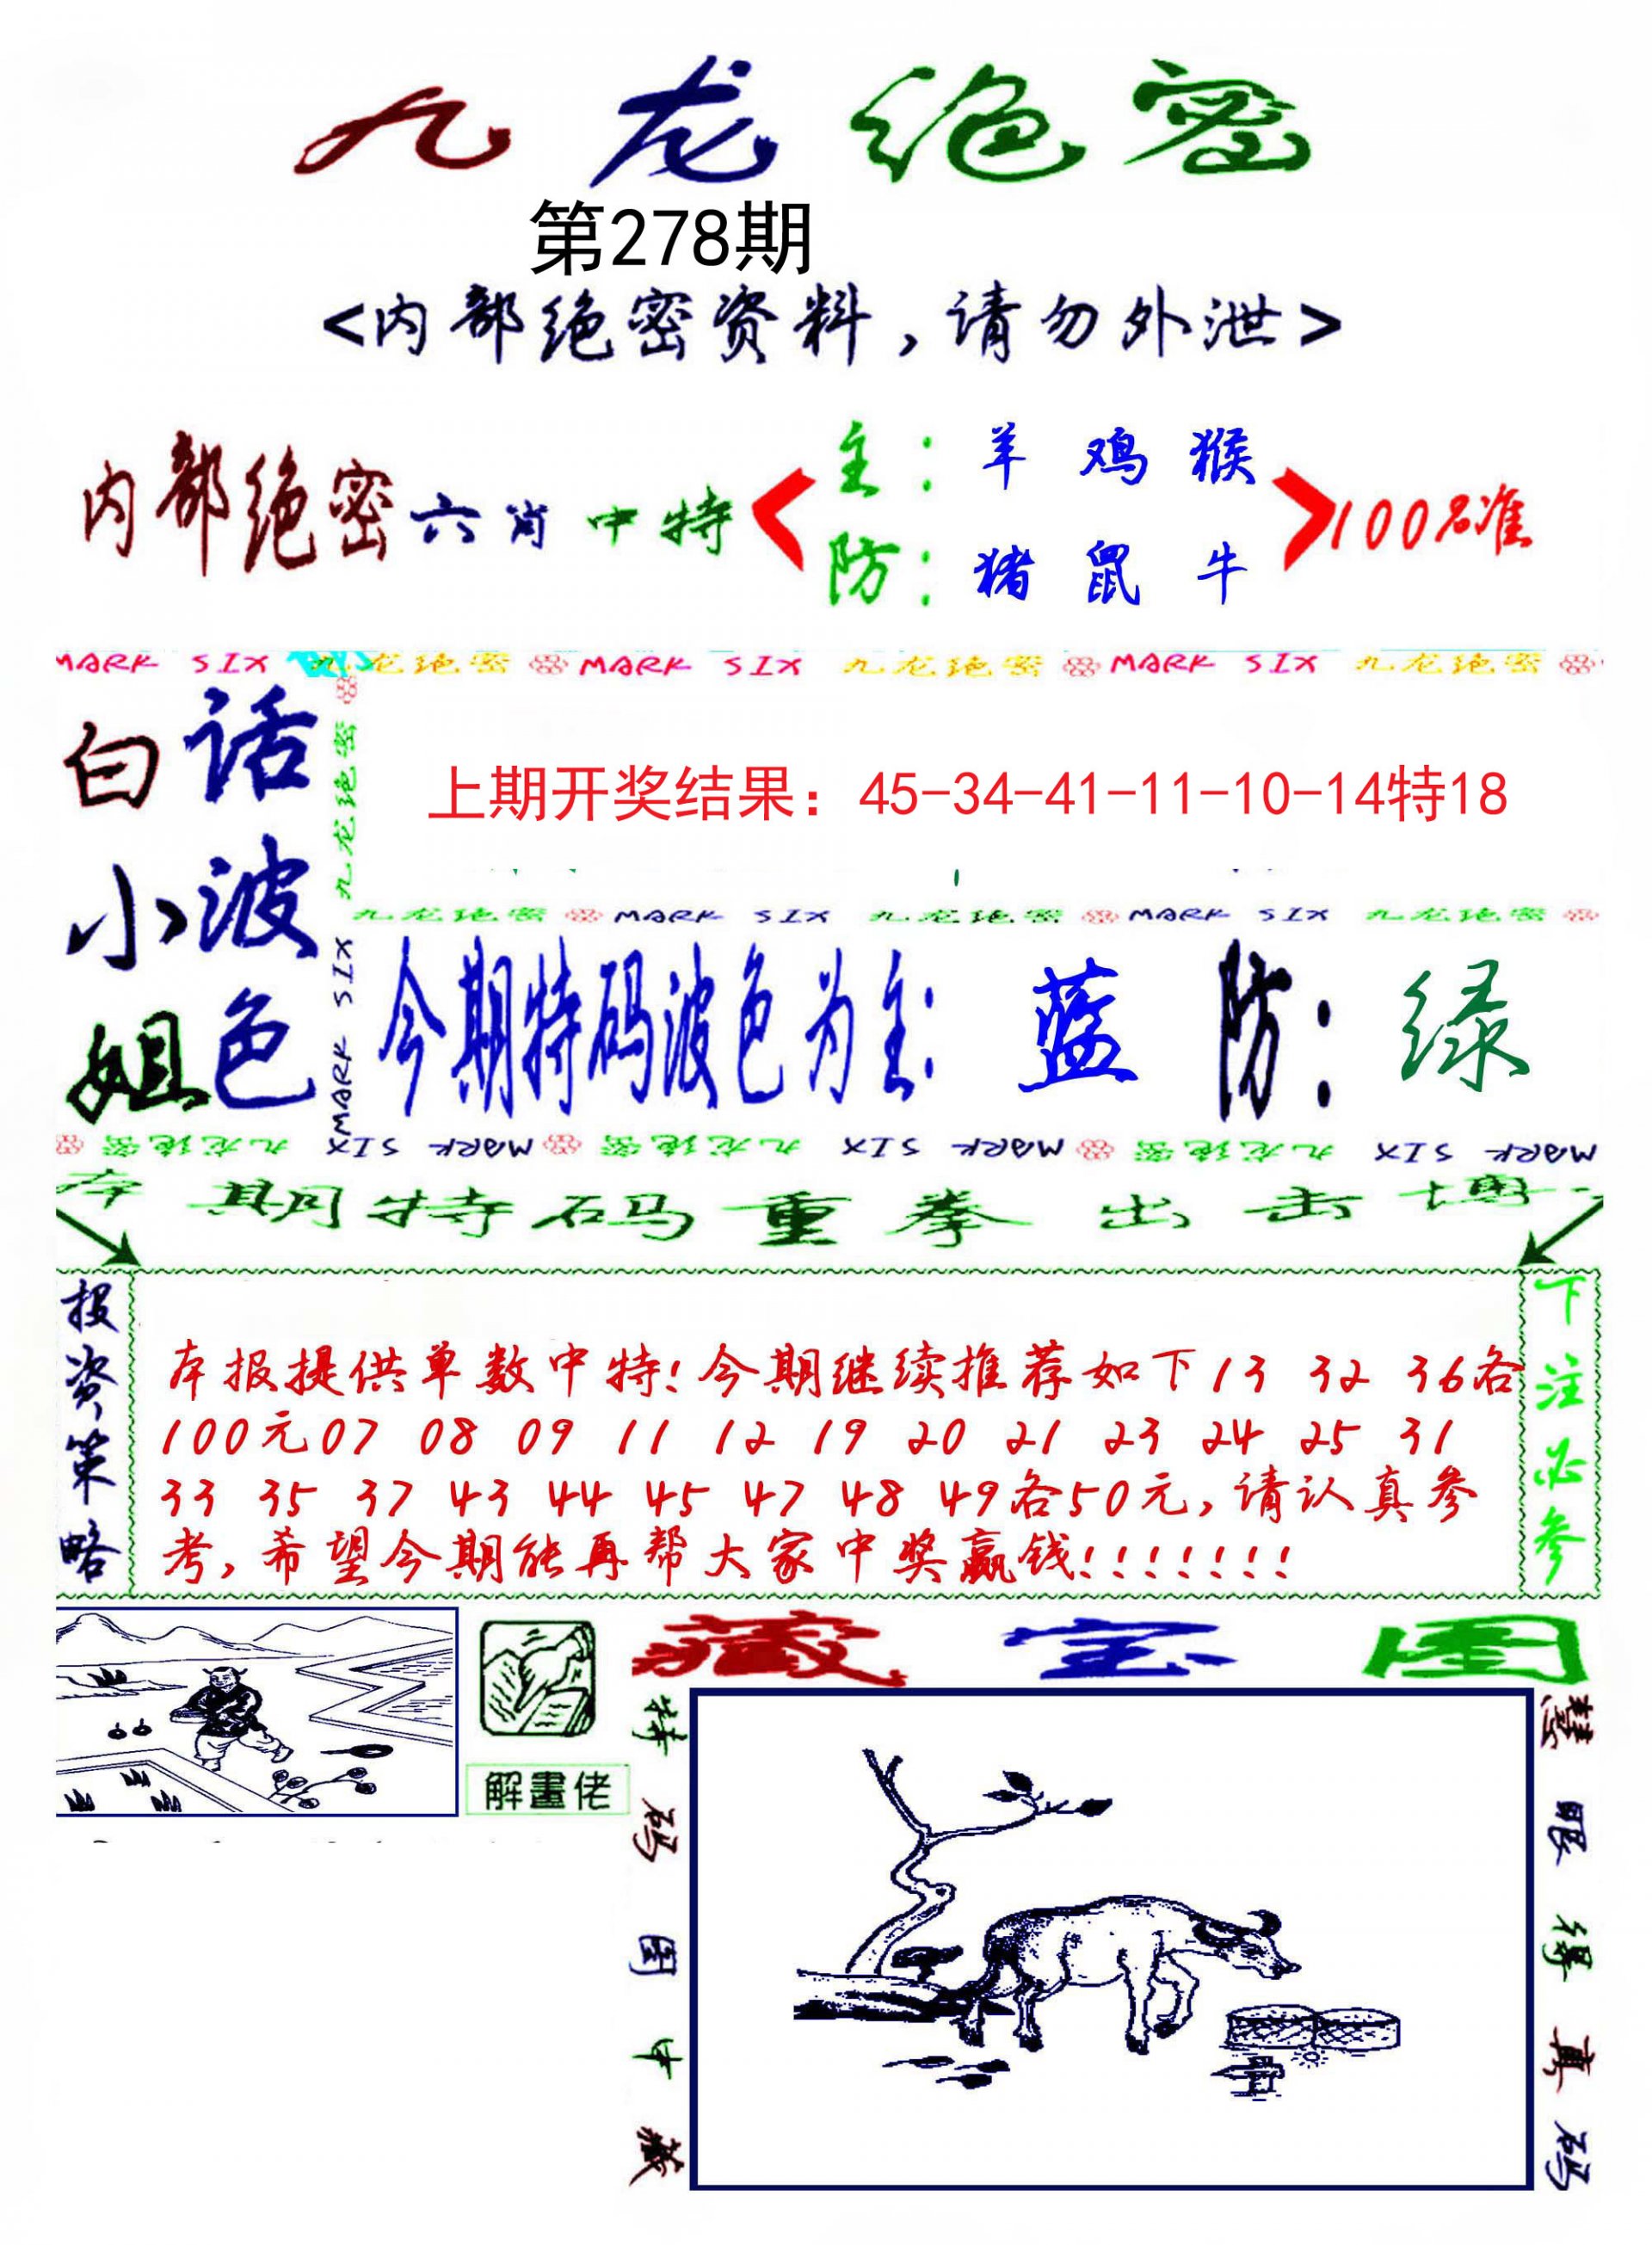 九龙绝密
第278期
<内部绝密资料,请勿外泄>
内部绝密六肖中特
主: 羊 鸡 猴
防: 猪 鼠 牛
100%准
MARK SIX 九龙绝密 MARK SIX 九龙绝密 MARK SIX 九龙绝密
白话
小波
姐色
九龙绝密
MARK SIX
上期开奖结果: 45-34-41-11-10-14特18
九龙绝密 MARK SIX 九龙绝密 MARK SIX 九龙绝密
今期特码波色为主: 蓝 防: 绿
九龙绝密 MARK SIX 九龙绝密 MARK SIX 九龙绝密 MARK SIX
本期特码重拳出击博
投资策略
本报提供单数中特!今期继续推荐如下13 32 36各
100元07 08 09 11 12 19 20 21 23 24 25 31
33 35 37 43 44 45 47 48 49各50元,请认真参
考,希望今期能再帮大家中奖赢钱!!!!!!!
下注必参
解畫佬
藏宝图
特码图中藏
慧眼得真码